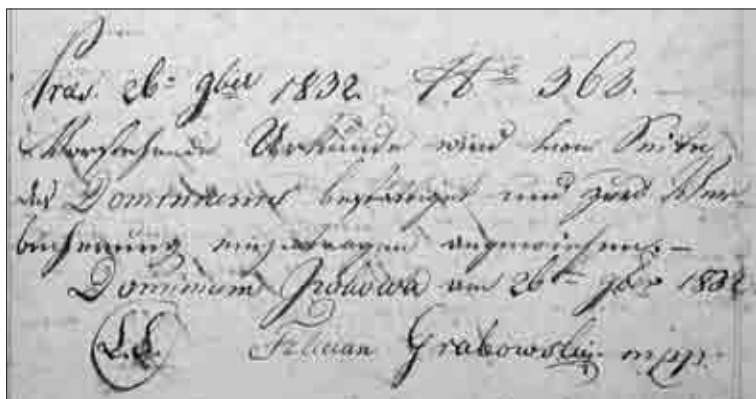 Präs. 26t 9ber 1832. No 363.
Vorstehende Urkunde wird von Seite
des Dominiums bestättiget und zur Ver-
bücherung einzutragen angewiesen.–
Dominium am 26ten 9ber 1832
(L.S.) Felician Grabowski mpp.